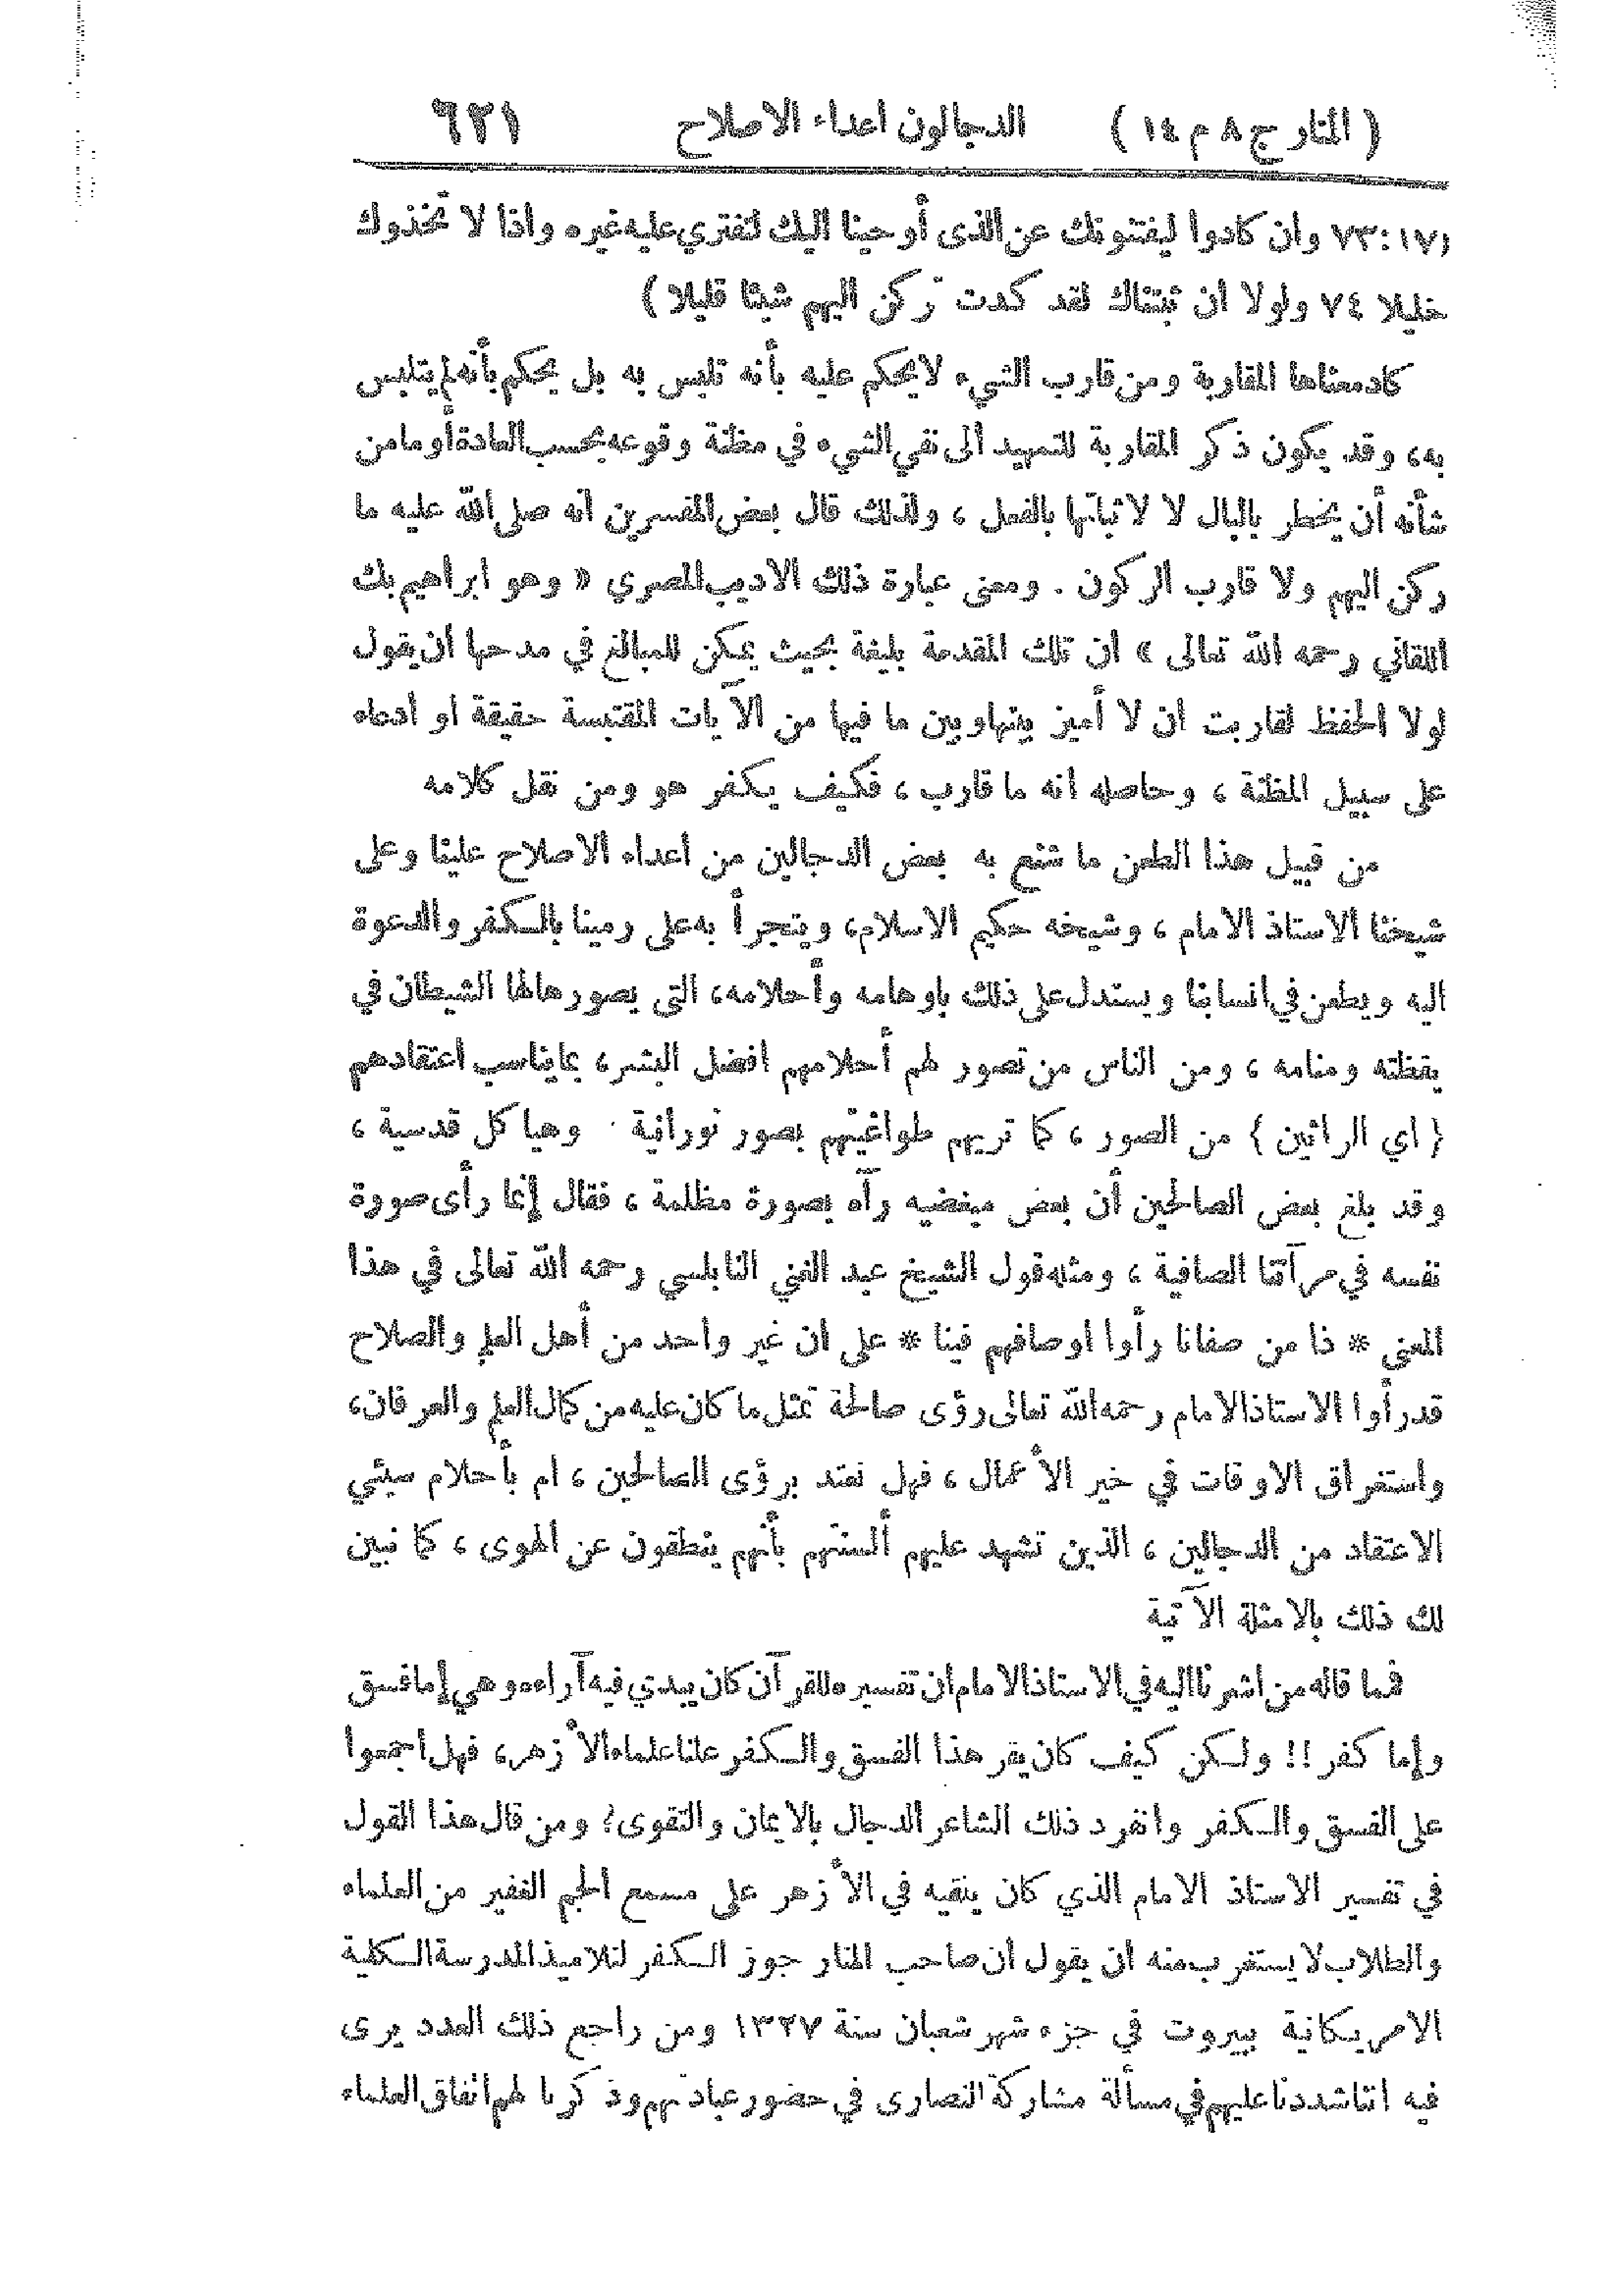 ( المنار ج ٨ م ١٤ ) الدجالون اعداء الاصلاح ٦٢١
(٧٣:١٧ وان كادوا ليفتنونك عن الذى أوحينا اليك لتفتري عليه غيره واذا لا تخذوك
خليلا ٧٤ ولولا ان ثبتناك لقد كدت تركن اليهم شيئا قليلا )
كاد معناها المقاربة ومن قارب الشيء لا يحكم عليه بأنه تلبس به بل يحكم بأنه لم يتلبس
به، وقد يكون ذكر المقاربة للتمهيد الى نفي الشيء في مظنة وقوعه بحسب العادة أو ما من
شأنه أن يخطر بالبال لا لاثباتها بالفعل ، ولذلك قال بعض المفسرين انه صلى الله عليه ما
ركن اليهم ولا قارب الركون . ومعنى عبارة ذلك الاديب المصري « وهو ابراهيم بك
اللقاني رحمه الله تعالى » ان تلك المقدمة بليغة بحيث يمكن للمبالغ في مدحها أن يقول
لولا الحفظ لقاربت ان لا أميز بينها وبين ما فيها من الآيات المقتبسة حقيقة أو أدعاء
على سبيل المظنة ، وحاصله انه ما قارب ، فكيف يكفر هو ومن نقل كلامه
من قبيل هذا الطعن ما شنع به بعض الدجالين من أعداء الاصلاح علينا وعلى
شيخنا الاستاذ الامام ، وشيخه حكيم الاسلام، ويتجرأ به على رمينا بالكفر والدعوة
اليه ويطعن في انسابنا ويستدل على ذلك باوهامه وأحلامه، التى يصورها لها الشيطان في
يقظته ومنامه ، ومن الناس من تصور لهم أحلامهم افضل البشر، بما يناسب اعتقادهم
{ اي الرائين } من الصور ، كما تريهم طواغيتهم بصور نورانية وهياكل قدسية ،
وقد بلغ بعض الصالحين أن بعض مبغضيه رآه بصورة مظلمة ، فقال إنما رأى صورة
نفسه في مرآتنا الصافية ، ومثله قول الشيخ عبد الغني النابلسي رحمه الله تعالى في هذا
المعنى * ذا من صفانا رأوا اوصافهم فينا * على ان غير واحد من أهل العلم والصلاح
قد رأوا الاستاذ الامام رحمه الله تعالى رؤى صالحة تمثل ما كان عليه من كمال العلم والعرفان،
واستغراق الاوقات في خير الأعمال ، فهل نعتد برؤى الصالحين ، ام بأحلام سيئي
الاعتقاد من الدجالين ، الذين تشهد عليهم ألسنتهم بأنهم ينطقون عن الهوى ، كما نبين
لك ذلك بالامثلة الآتية
فما قاله من اشرنا اليه في الاستاذ الامام ان تفسيره للقرآن كان يبدي فيه آراءه وهي إما فسق
وإما كفر !! ولكن كيف كان يقر هذا الفسق والكفر علنا علماء الأزهر، فهل اجمعوا
على الفسق والكفر وانفرد ذلك الشاعر الدجال بالايمان والتقوى؟ ومن قال هذا القول
في تفسير الاستاذ الامام الذي كان يلقيه في الأزهر على مسمع الجم الغفير من العلماء
والطلاب لا يستغرب منه ان يقول ان صاحب المنار جوز الكفر لتلاميذ المدرسة الكلية
الامريكانية ببيروت في جزء شهر شعبان سنة ١٣٢٧ ومن راجع ذلك العدد يرى
فيه اننا شددنا عليهم في مسألة مشاركة النصارى في حضور عبادتهم وذكرنا لهم اتفاق العلماء